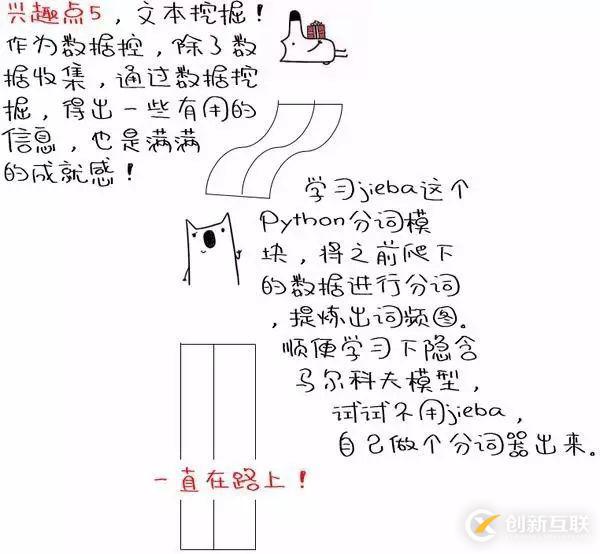 兴趣点5，文本挖掘！
作为数据控，除了数
据收集，通过数据挖
掘，得出一些有用的
信息，也是满满
的成就感！
学习jieba这个
Python分词模
块，将之前爬下
的数据进行分词
，提炼出词频图。
顺便学习下隐含
马尔科夫模型，
试试不用jieba，
自己做个分词器出来。
一直在路上！
创新互联